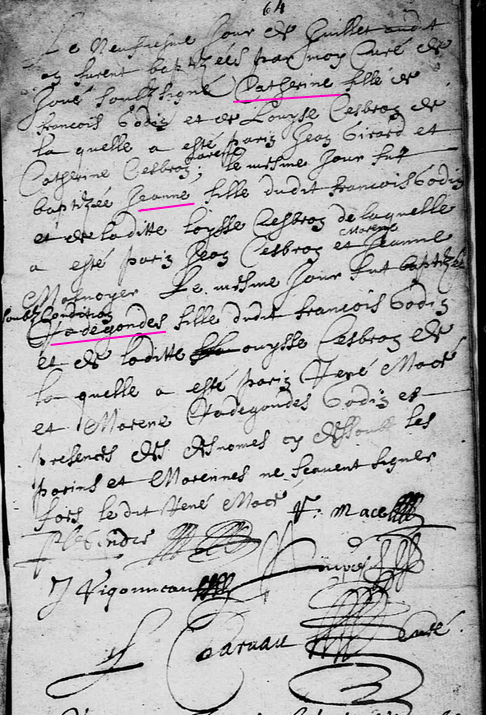 64
Le neufiesme jour de Juillet audit
an furent baptizées par moy Curé de
Joué soubz signé Catherine fille de
francois Godin et de Louyse Cesbron de
la quelle a esté parin Jean Girard et
Catherine Cesbron marenne, le mesme jour fut
baptizée Jeanne fille dudit francois Godin
et de laditte loysse Cesbron de laquelle
a esté parin Jean Cesbron et Jeanne
marene
Le mesme jour fut baptizée
soubz condition
Radegondes fille dudit francois Godin
et de laditte Louysse Cesbron de
la quelle a esté parin René Macé
et Marene Radegondes Godin et
presences des desnomes cy dessoubz les
parins et Marennes ne scavent signer
fors le dit René Macé
R. Mace
J Vigonneau
curé